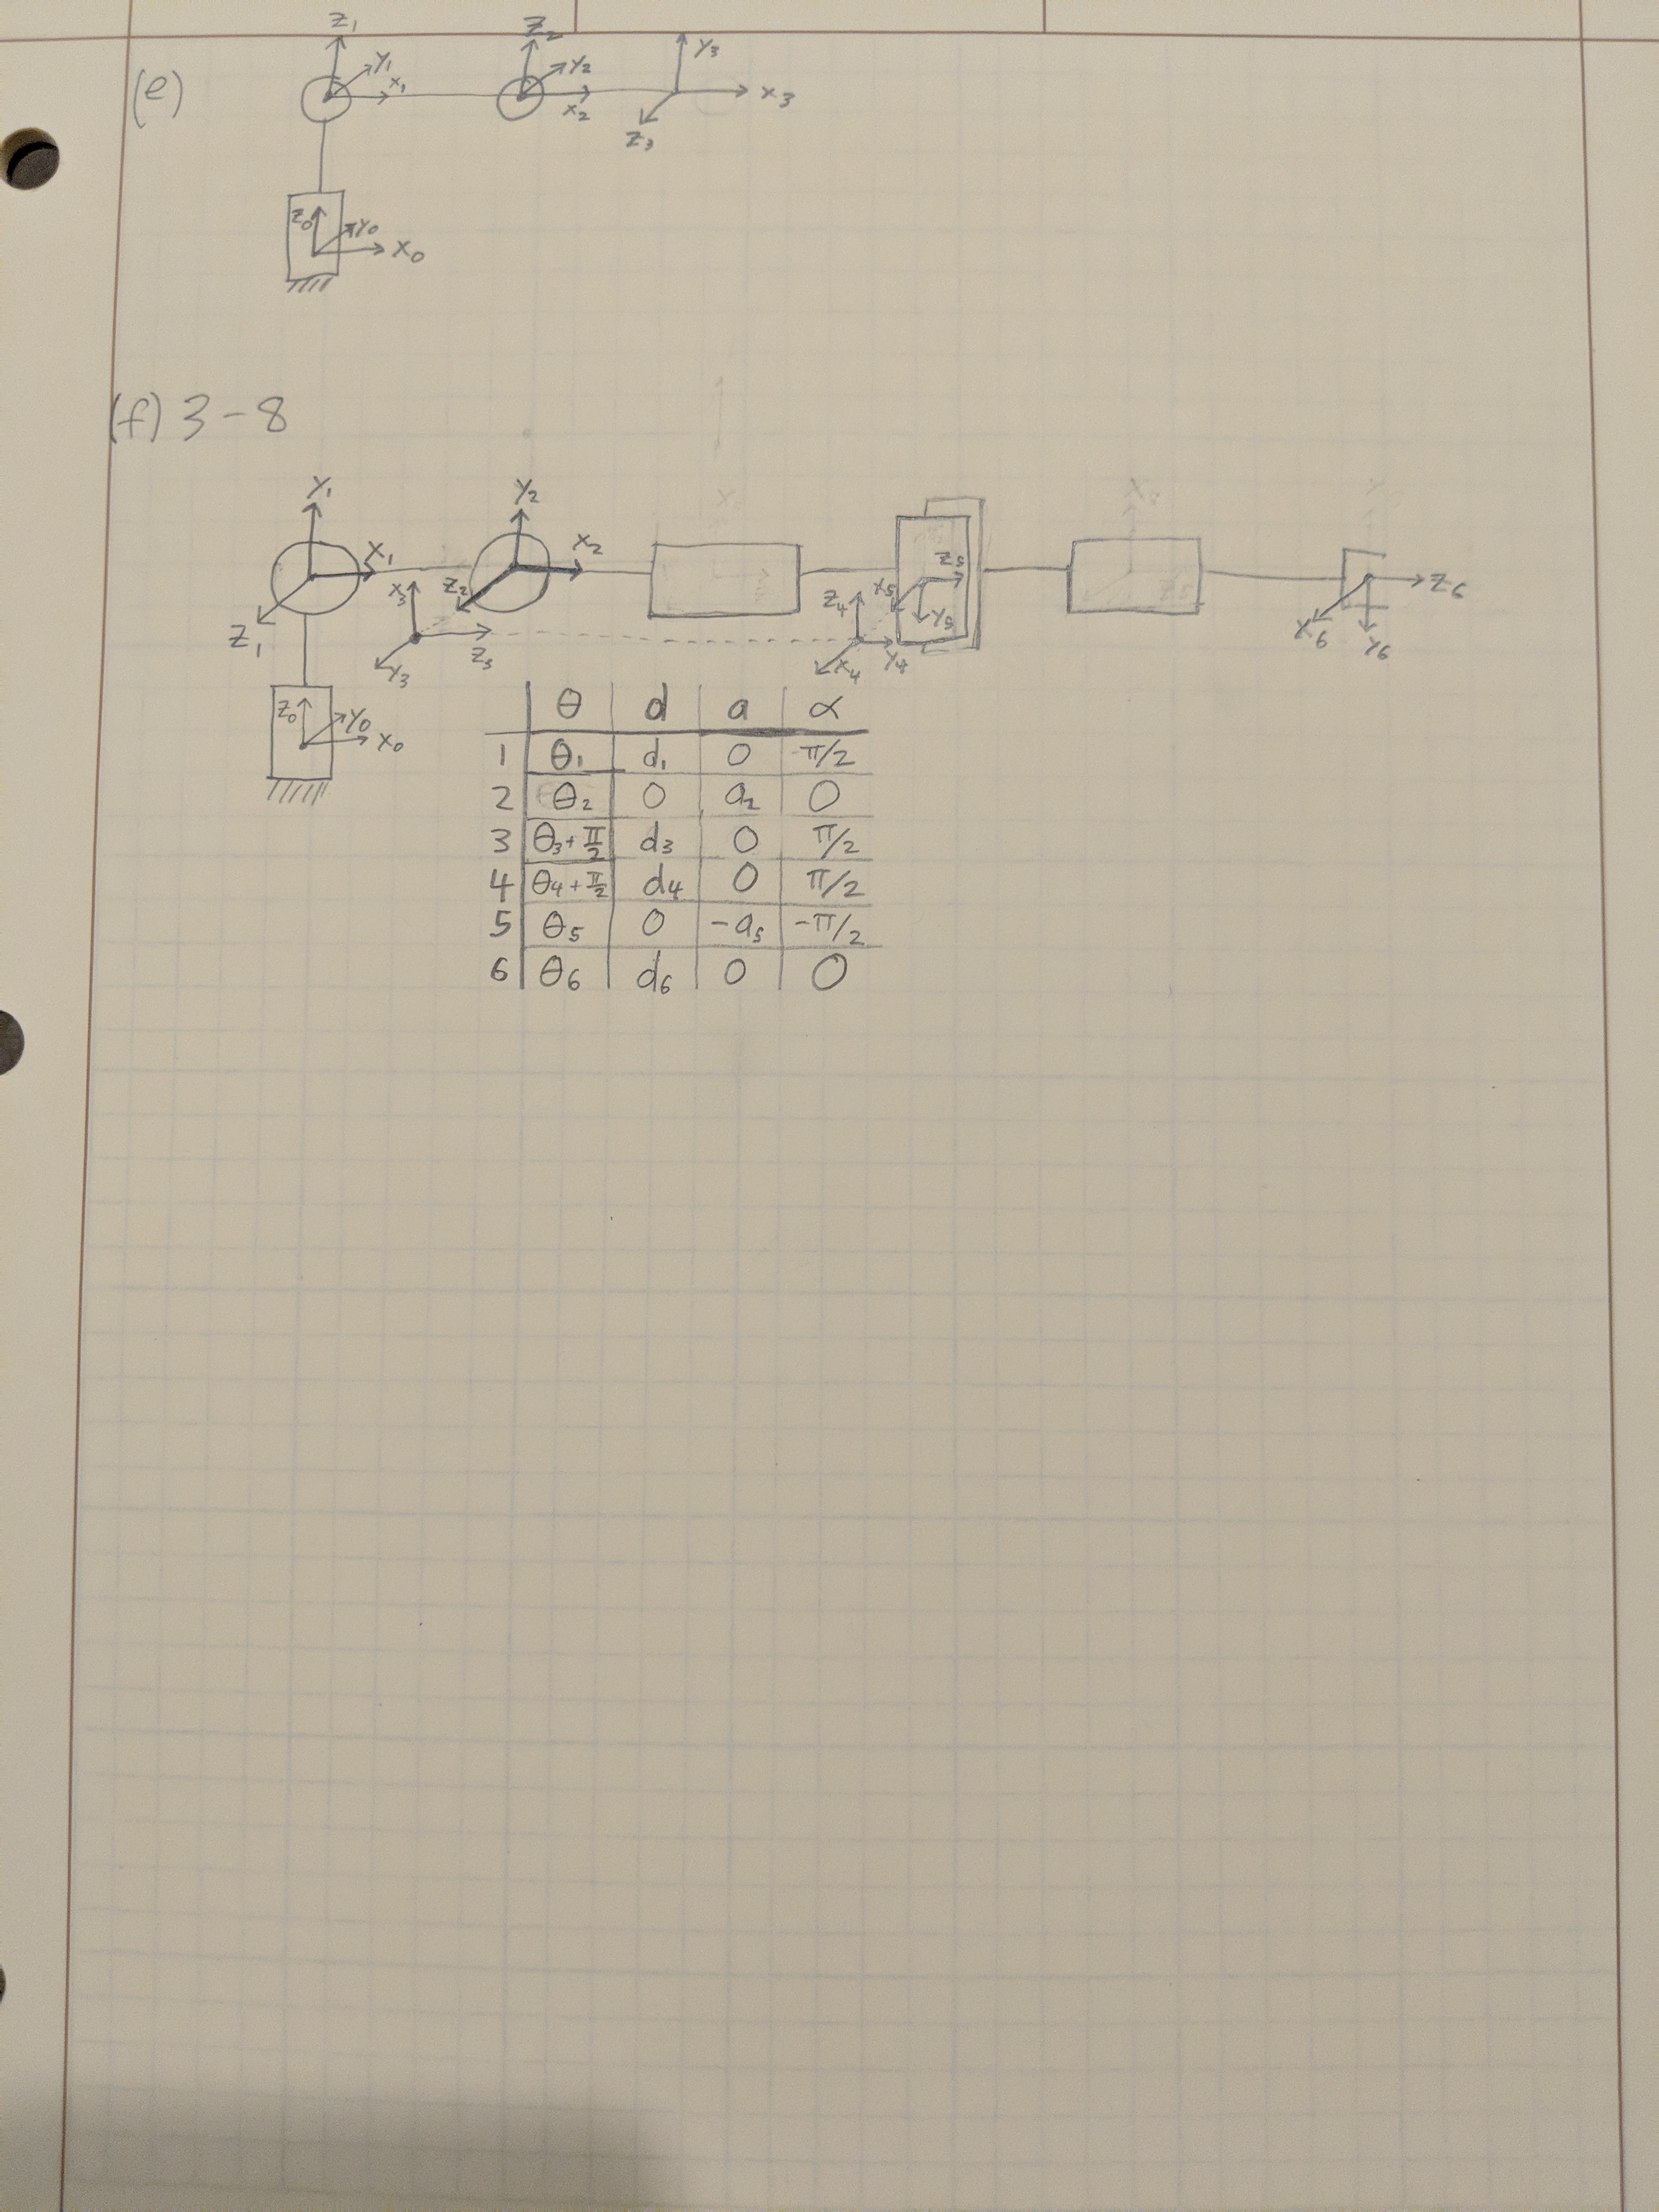 (e)
Z₁ Y₁ X₁ Z₂ Y₂ X₂ Y₃ X₃ Z₃
Z₀ Y₀ X₀
(f) 3-8
Y₁ X₁ Z₁ Y₂ X₂ Z₂ X₃ Z₃ Y₃ Z₄ X₄ Y₄ X₅ Z₅ Y₅ Z₆ X₆ Y₆
Z₀ Y₀ X₀
θ d a α
1 θ₁ d₁ 0 π/2
2 θ₂ 0 a₂ 0
3 θ₃+π/2 d₃ 0 π/2
4 θ₄+π/2 d₄ 0 π/2
5 θ₅ 0 -a₅ -π/2
6 θ₆ d₆ 0 0